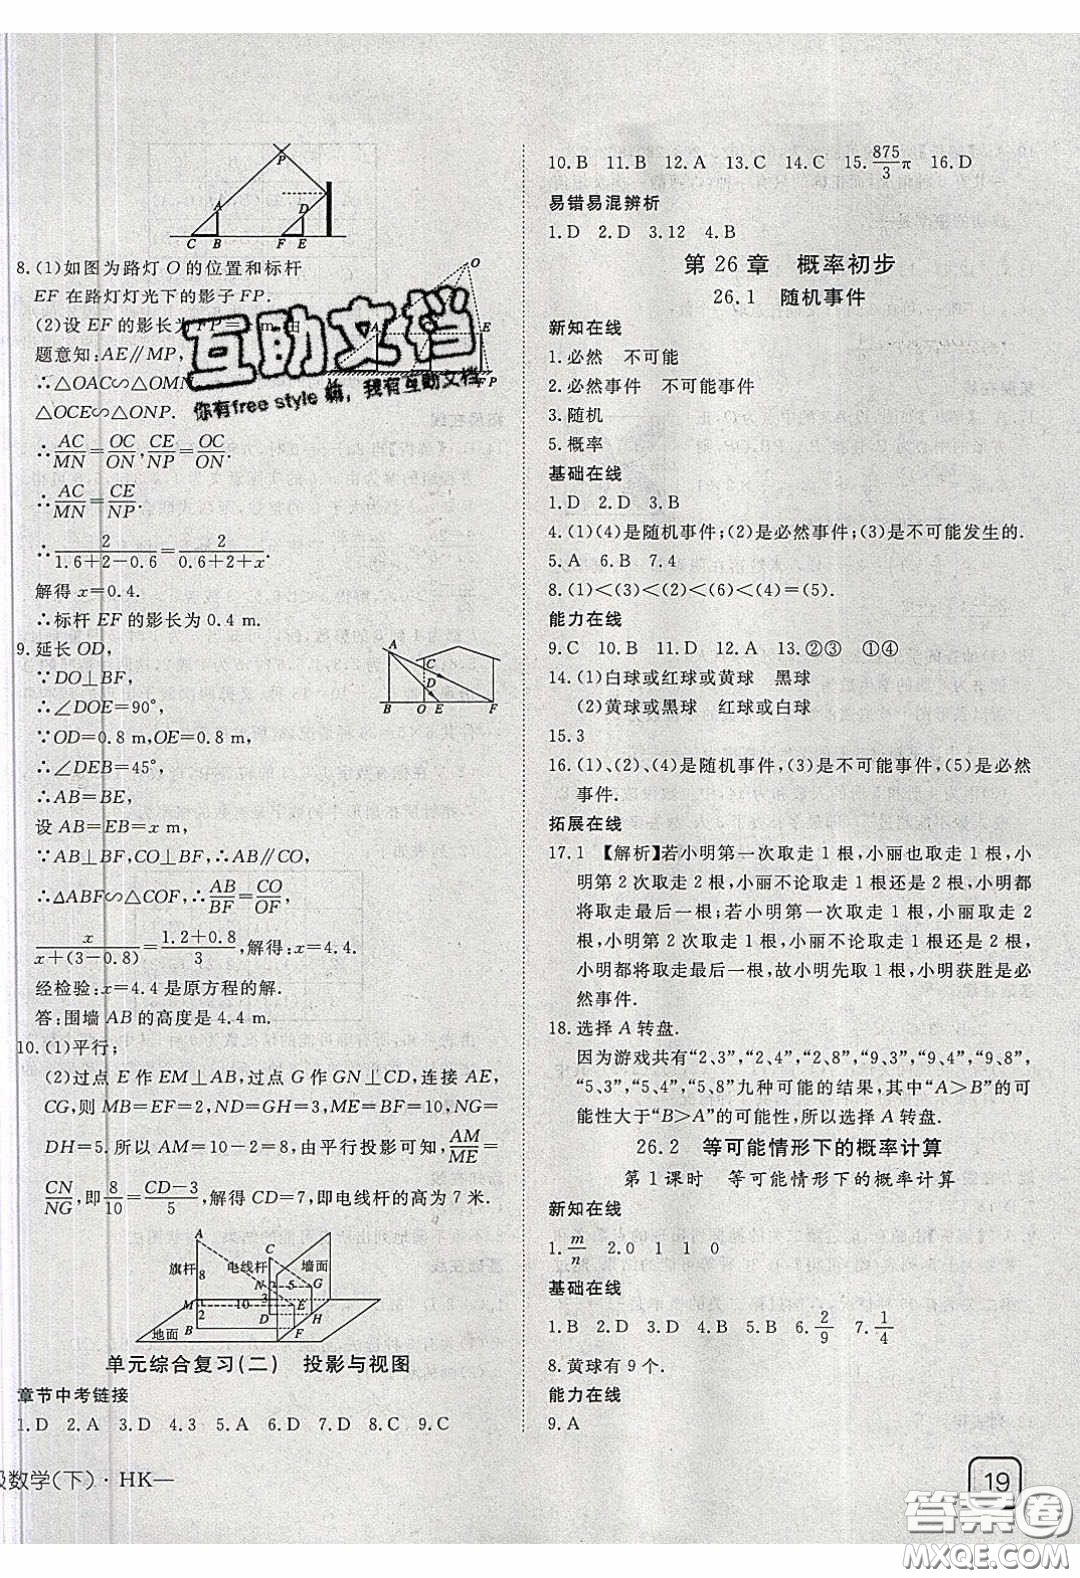 8.(1)如图为路灯O的位置和标杆
EF在路灯灯光下的影子FP.
(2)设EF的影长为FP=
题意知:AE∥MP,
∴△OAC∽△OMN,
△OCE∽△ONP.
∴AC/MN=OC/ON,CE/NP=OC/ON.
∴AC/MN=CE/NP.
∴2/(1.6+2-0.6)=2/(0.6+2+x).
解得x=0.4.
∴标杆EF的影长为0.4 m.
9.延长OD,
∵DO⊥BF,
∴∠DOE=90°,
∵OD=0.8 m,OE=0.8 m,
∴∠DEB=45°,
∴AB=BE,
设AB=EB=x m,
∵AB⊥BF,CO⊥BF,∴AB∥CO,
∴△ABF∽△COF,∴AB/BF=CO/OF,
x/(x+(3-0.8))=(1.2+0.8)/3,解得:x=4.4.
经检验:x=4.4是原方程的解.
答:围墙AB的高度是4.4 m.
10.(1)平行;
(2)过点E作EM⊥AB,过点G作GN⊥CD,连接AE,
CG,则MB=EF=2,ND=GH=3,ME=BF=10,NG=
DH=5.所以AM=10-2=8,由平行投影可知,AM/ME=
CN/NG,即8/10=(CD-3)/5,解得CD=7,即电线杆的高为7米.
旗杆 电线杆 墙面 地面
单元综合复习(二) 投影与视图
章节中考链接
1.D 2.A 3.D 4.3 5.A 6.D 7.D 8.C 9.C
级数学(下)·HK—
10.B 11.B 12.A 13.C 14.C 15.875/3π 16.D
易错易混辨析
1.D 2.D 3.12 4.B
第26章 概率初步
26.1 随机事件
新知在线
1.必然 不可能
2.必然事件 不可能事件
3.随机
5.概率
基础在线
1.D 2.D 3.B
4.(1)(4)是随机事件;(2)是必然事件;(3)是不可能发生的.
5.A 6.B 7.4
8.(1)<(3)<(2)<(6)<(4)=(5).
能力在线
9.C 10.B 11.D 12.A 13.②③ ①④
14.(1)白球或红球或黄球 黑球
(2)黄球或黑球 红球或白球
15.3
16.(1)、(2)、(4)是随机事件,(3)是不可能事件,(5)是必然
事件.
拓展在线
17.1 【解析】若小明第一次取走1根,小丽也取走1根,小
明第2次取走2根,小丽不论取走1根还是2根,小明都
将取走最后一根;若小明第一次取走1根,小丽取走2
根,小明第2次取走1根,小丽不论取走1根还是2根,
小明都将取走最后一根,故小明先取1根,小明获胜是必
然事件.
18.选择A转盘.
因为游戏共有“2、3”,“2、4”,“2、8”,“9、3”,“9、4”,“9、8”,
“5、3”,“5、4”,“5、8”九种可能的结果,其中“A>B”的可
能性大于“B>A”的可能性,所以选择A转盘.
26.2 等可能情形下的概率计算
第1课时 等可能情形下的概率计算
新知在线
1.m/n 2.0 1 1 0
基础在线
1.B 2.D 3.C 4.B 5.B 6.2/9 7.1/4
8.黄球有9个.
能力在线
9.A
19
互助文档
你有free style 嘛, 我有互助文档
答案圈
MXQE.COM